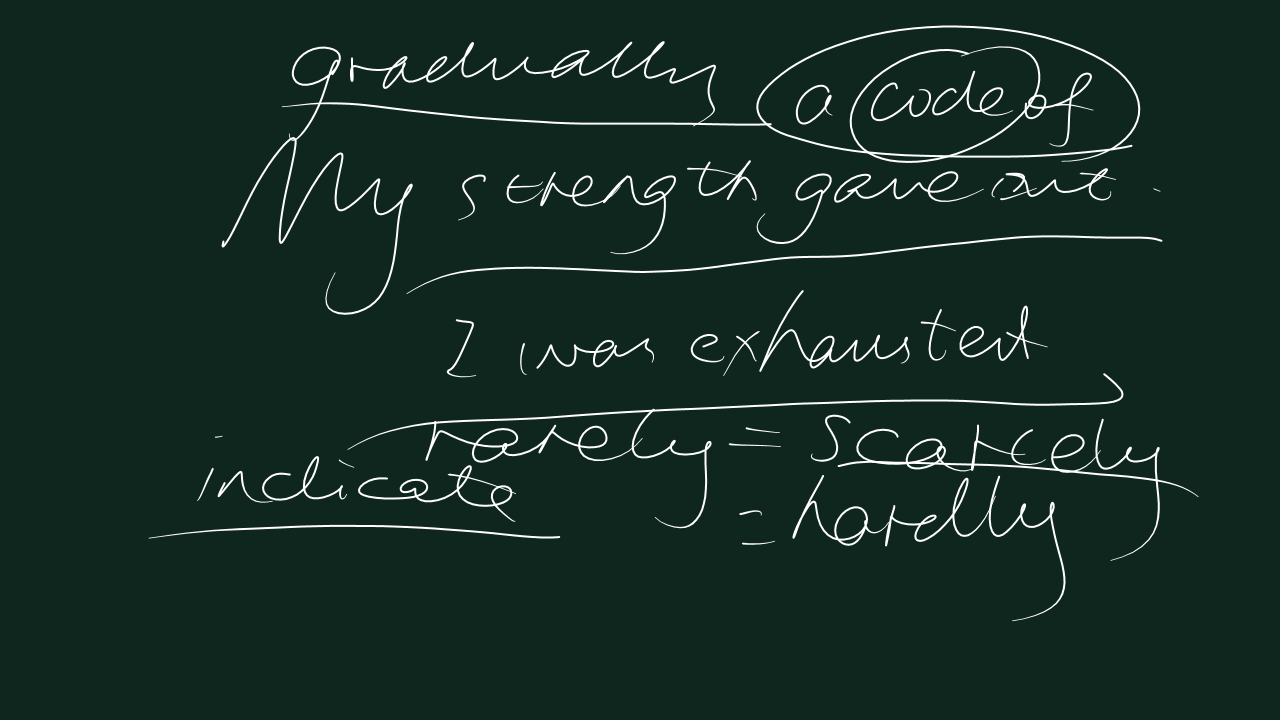 gradually a code of
My strength gave out.
I was exhausted
rarely = scarcely
indicate = hardly